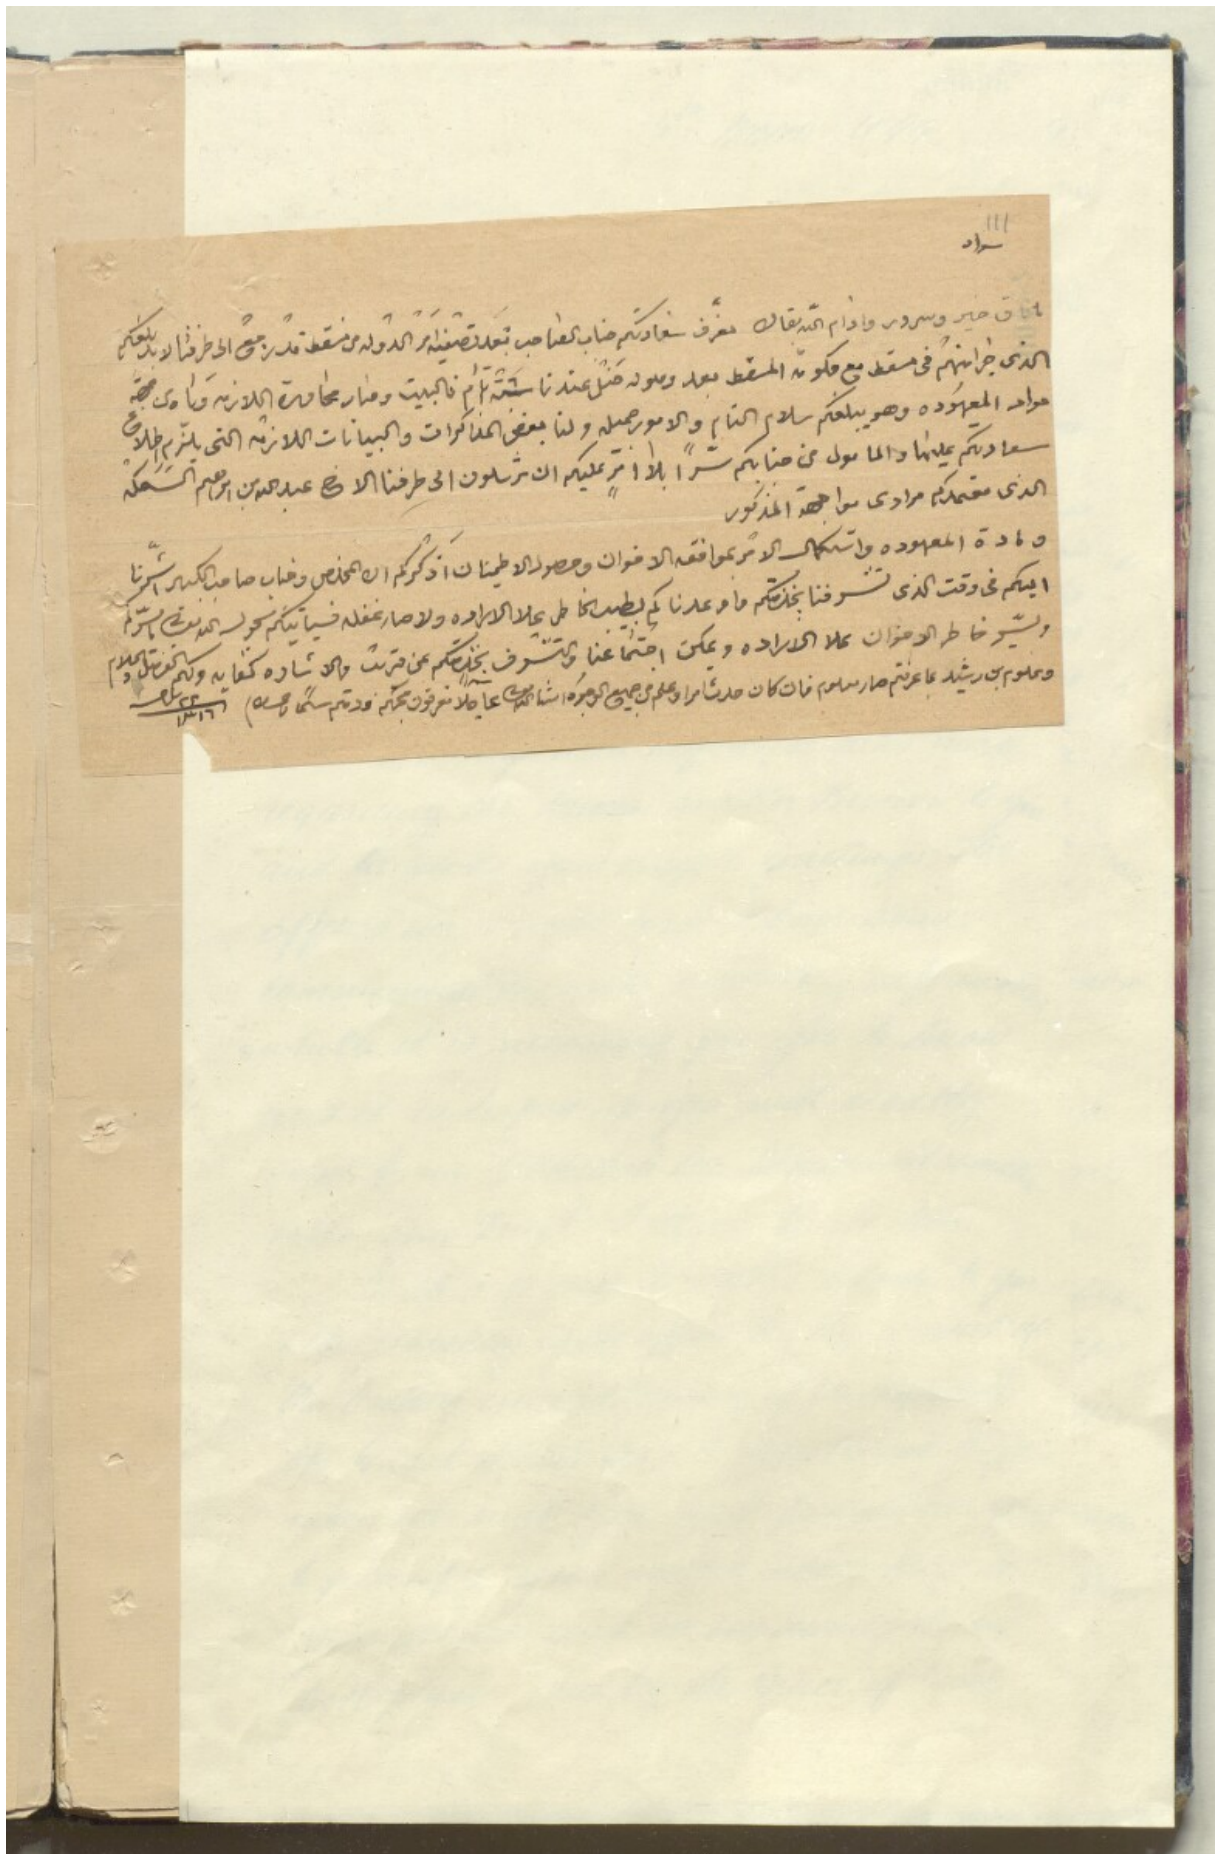 ١١١
سواد
خير وسرور وادام الله بقاك معرف سعادتكم جناب الصاحب بعد تصفية امر الدوله من مسقط قد رجع الى طرفنا لابد بلغكم
الذي جرا منهم في مسقط مع حكومة المسقط بعد وصوله عندنا تم فالبيت وصار مخابرة اللازمه
مواد المعهوده وهو يبلغكم سلام التام والامور جميله ولنا بعض المذاكرات والبيانات اللازمه التي يلتزم اطلاع
سعادتكم عليها والمامول من جنابكم سرًا بلا عليكم ان ترسلون الى طرفنا الاخ عبدالله بن ابراهيم السمكه
الذي معتمدكم مرادي مواجهة المذكور
ومادة المعهوده واستكمال الامر بموافقه الاخوان وحصول الاطمينان اذكركم ان المخلص وجناب صاحب الكبير اشرنا
اليكم في وقت الذي تشرفنا بخدمتكم ما وعدناكم بطيب الخاطر علا الاراده ولا صار غفله فسياتيكم بحول الله ما يسركم
ويسر خاطر الاخوان علا الاراده ويمكن اجتماعنا والتشرف بخدمتكم عن قريب والاشاره كفايه ولكم الفضل والسلام
ومعلوم بن رشيد بما عرفتم صار معلوم فان كان حدث امر او علم من جميع الوجوه انشا الله عاجلا تعرفون محبكم ودمتم سالما
٢٢
١٣١٦